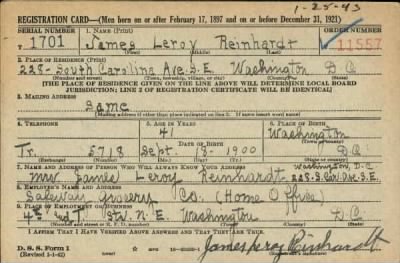 1-25-43
REGISTRATION CARD—(Men born on or after February 17, 1897 and on or before December 31, 1921)
SERIAL NUMBER 1. NAME (Print) ORDER NUMBER
V 1701 James Leroy Reinhardt 11557
(First) (Middle) (Last)
2. PLACE OF RESIDENCE (Print)
228- South Carolina Ave. S.E. Washington D C
(Number and street) (Town, township, village, or city) (County) (State)
[THE PLACE OF RESIDENCE GIVEN ON THE LINE ABOVE WILL DETERMINE LOCAL BOARD
JURISDICTION; LINE 2 OF REGISTRATION CERTIFICATE WILL BE IDENTICAL]
3. MAILING ADDRESS
Same
[Mailing address if other than place indicated on line 2. If same insert word same]
4. TELEPHONE 5. AGE IN YEARS 6. PLACE OF BIRTH
41 Washington
DATE OF BIRTH (Town or county)
Tr. 5718 Sept 18- 1900 D C
(Exchange) (Number) (Mo.) (Day) (Yr.) (State or country)
7. NAME AND ADDRESS OF PERSON WHO WILL ALWAYS KNOW YOUR ADDRESS Washington, D.C.
Mrs James Leroy Reinhardt 228-S.Car.Ave.S.E.
8. EMPLOYER'S NAME AND ADDRESS
Safeway Grocery Co. (Home Office)
9. PLACE OF EMPLOYMENT OR BUSINESS
4th and T Sts. N.E. Washington D.C
(Number and street or R. F. D. number) (Town) (County) (State)
I AFFIRM THAT I HAVE VERIFIED ABOVE ANSWERS AND THAT THEY ARE TRUE.
D. S. S. Form 1
(Revised 1-1-42) James Leroy Reinhardt